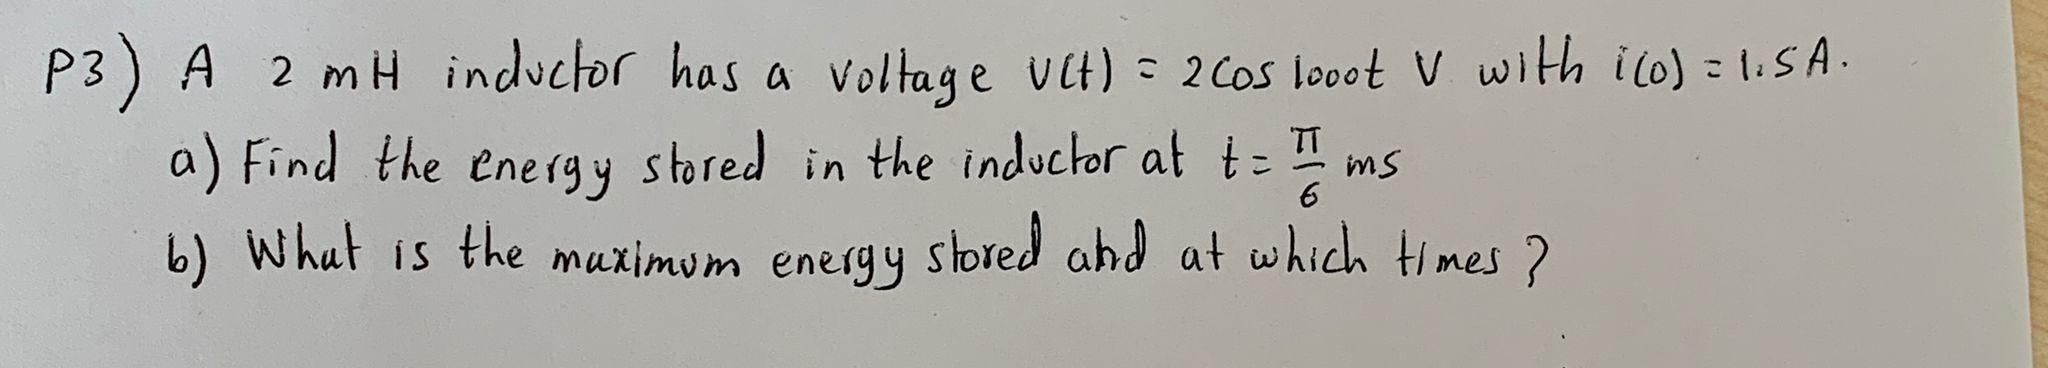 P3) A 2 mH inductor has a voltage v(t) = 2 cos 1000t V with i(0) = 1.5A.
a) Find the energy stored in the inductor at t = π/6 ms
b) What is the maximum energy stored and at which times?